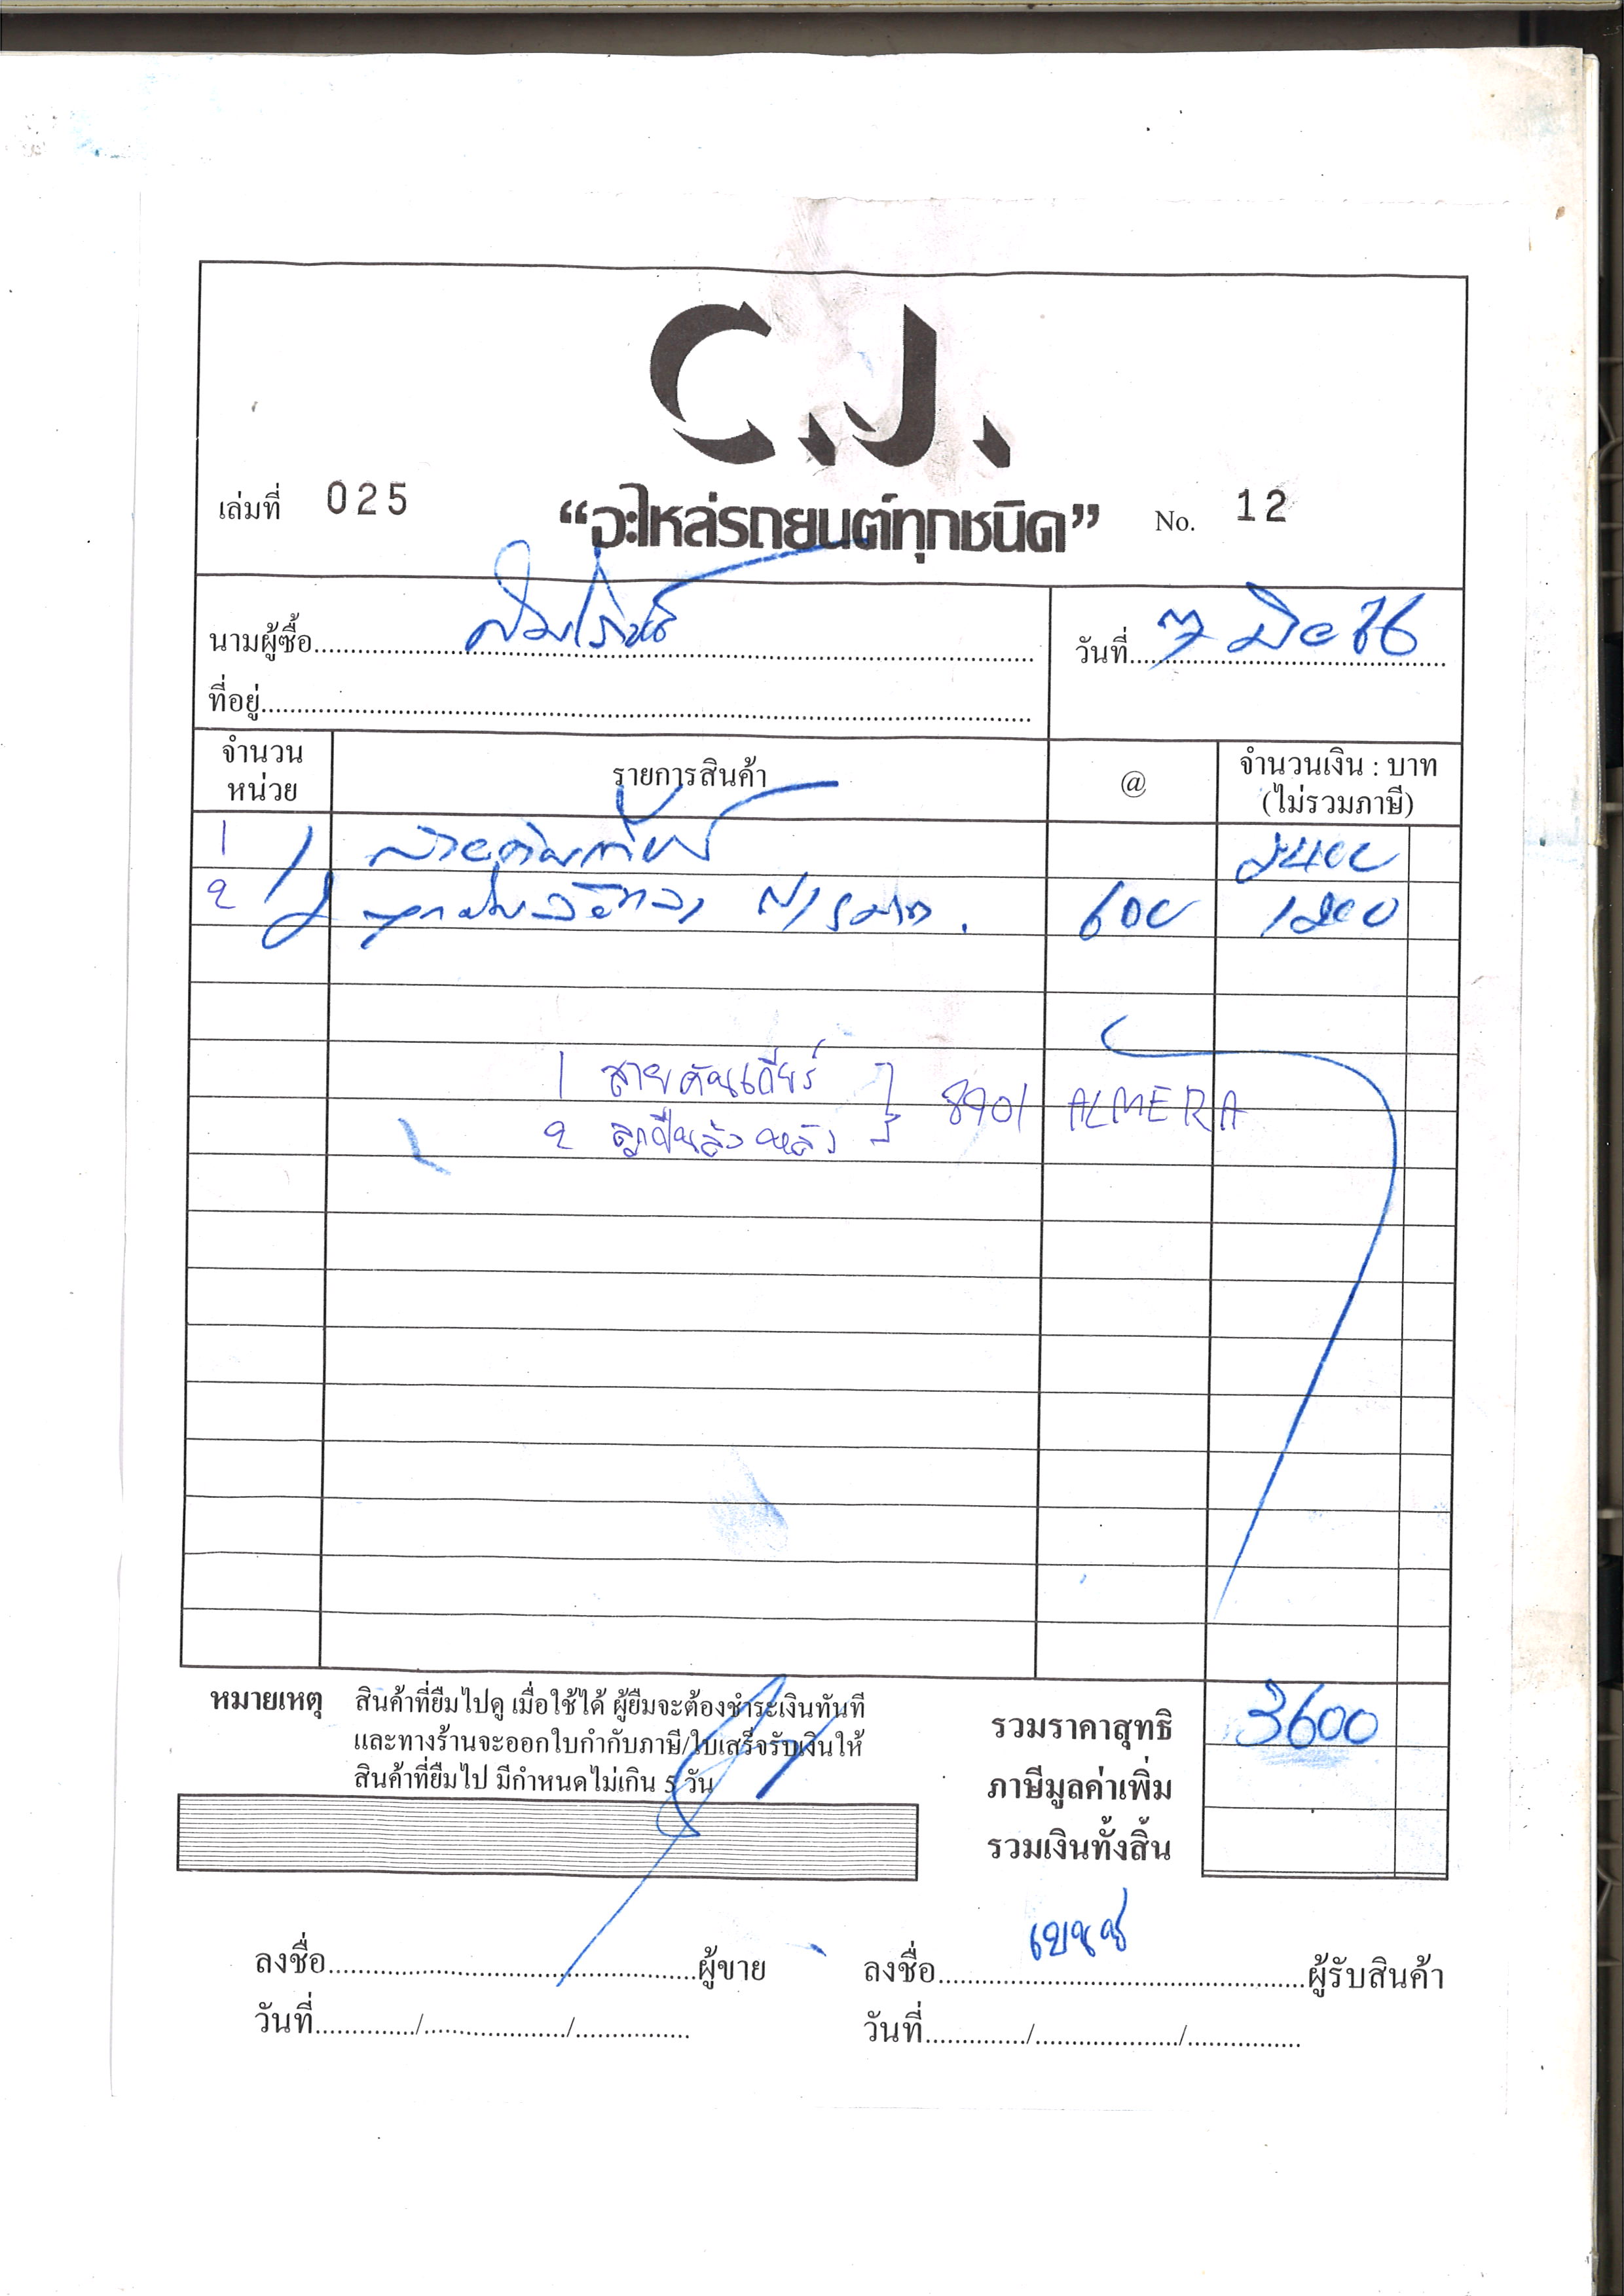 C.J.
เล่มที่ 025 “อะไหล่รถยนต์ทุกชนิด” No. 12
นามผู้ซื้อ วันที่ 7
ที่อยู่
จำนวนหน่วย รายการสินค้า @ จำนวนเงิน : บาท (ไม่รวมภาษี)
1 สายคันเกียร์ 2400
2 600 1200
1 สายคันเกียร์ } 8901 ALMERA
2 ลูกปืนล้อหลัง
หมายเหตุ สินค้าที่ยืมไปดู เมื่อใช้ได้ ผู้ยืมจะต้องชำระเงินทันที
และทางร้านจะออกใบกำกับภาษี/ใบเสร็จรับเงินให้
สินค้าที่ยืมไป มีกำหนดไม่เกิน 5 วัน
รวมราคาสุทธิ 3600
ภาษีมูลค่าเพิ่ม
รวมเงินทั้งสิ้น
ลงชื่อ ผู้ขาย ลงชื่อ ผู้รับสินค้า
วันที่ / / วันที่ / /